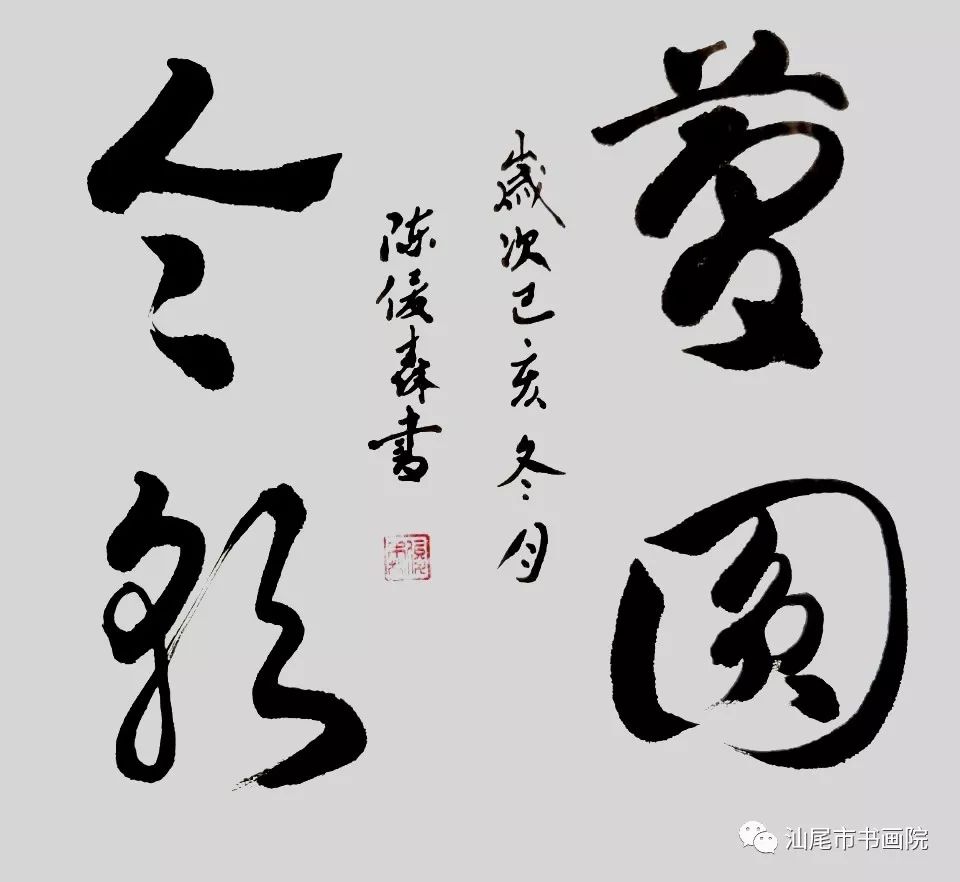 夢圓
今朝
歲次己亥冬月
陈俊森書
汕尾市书画院